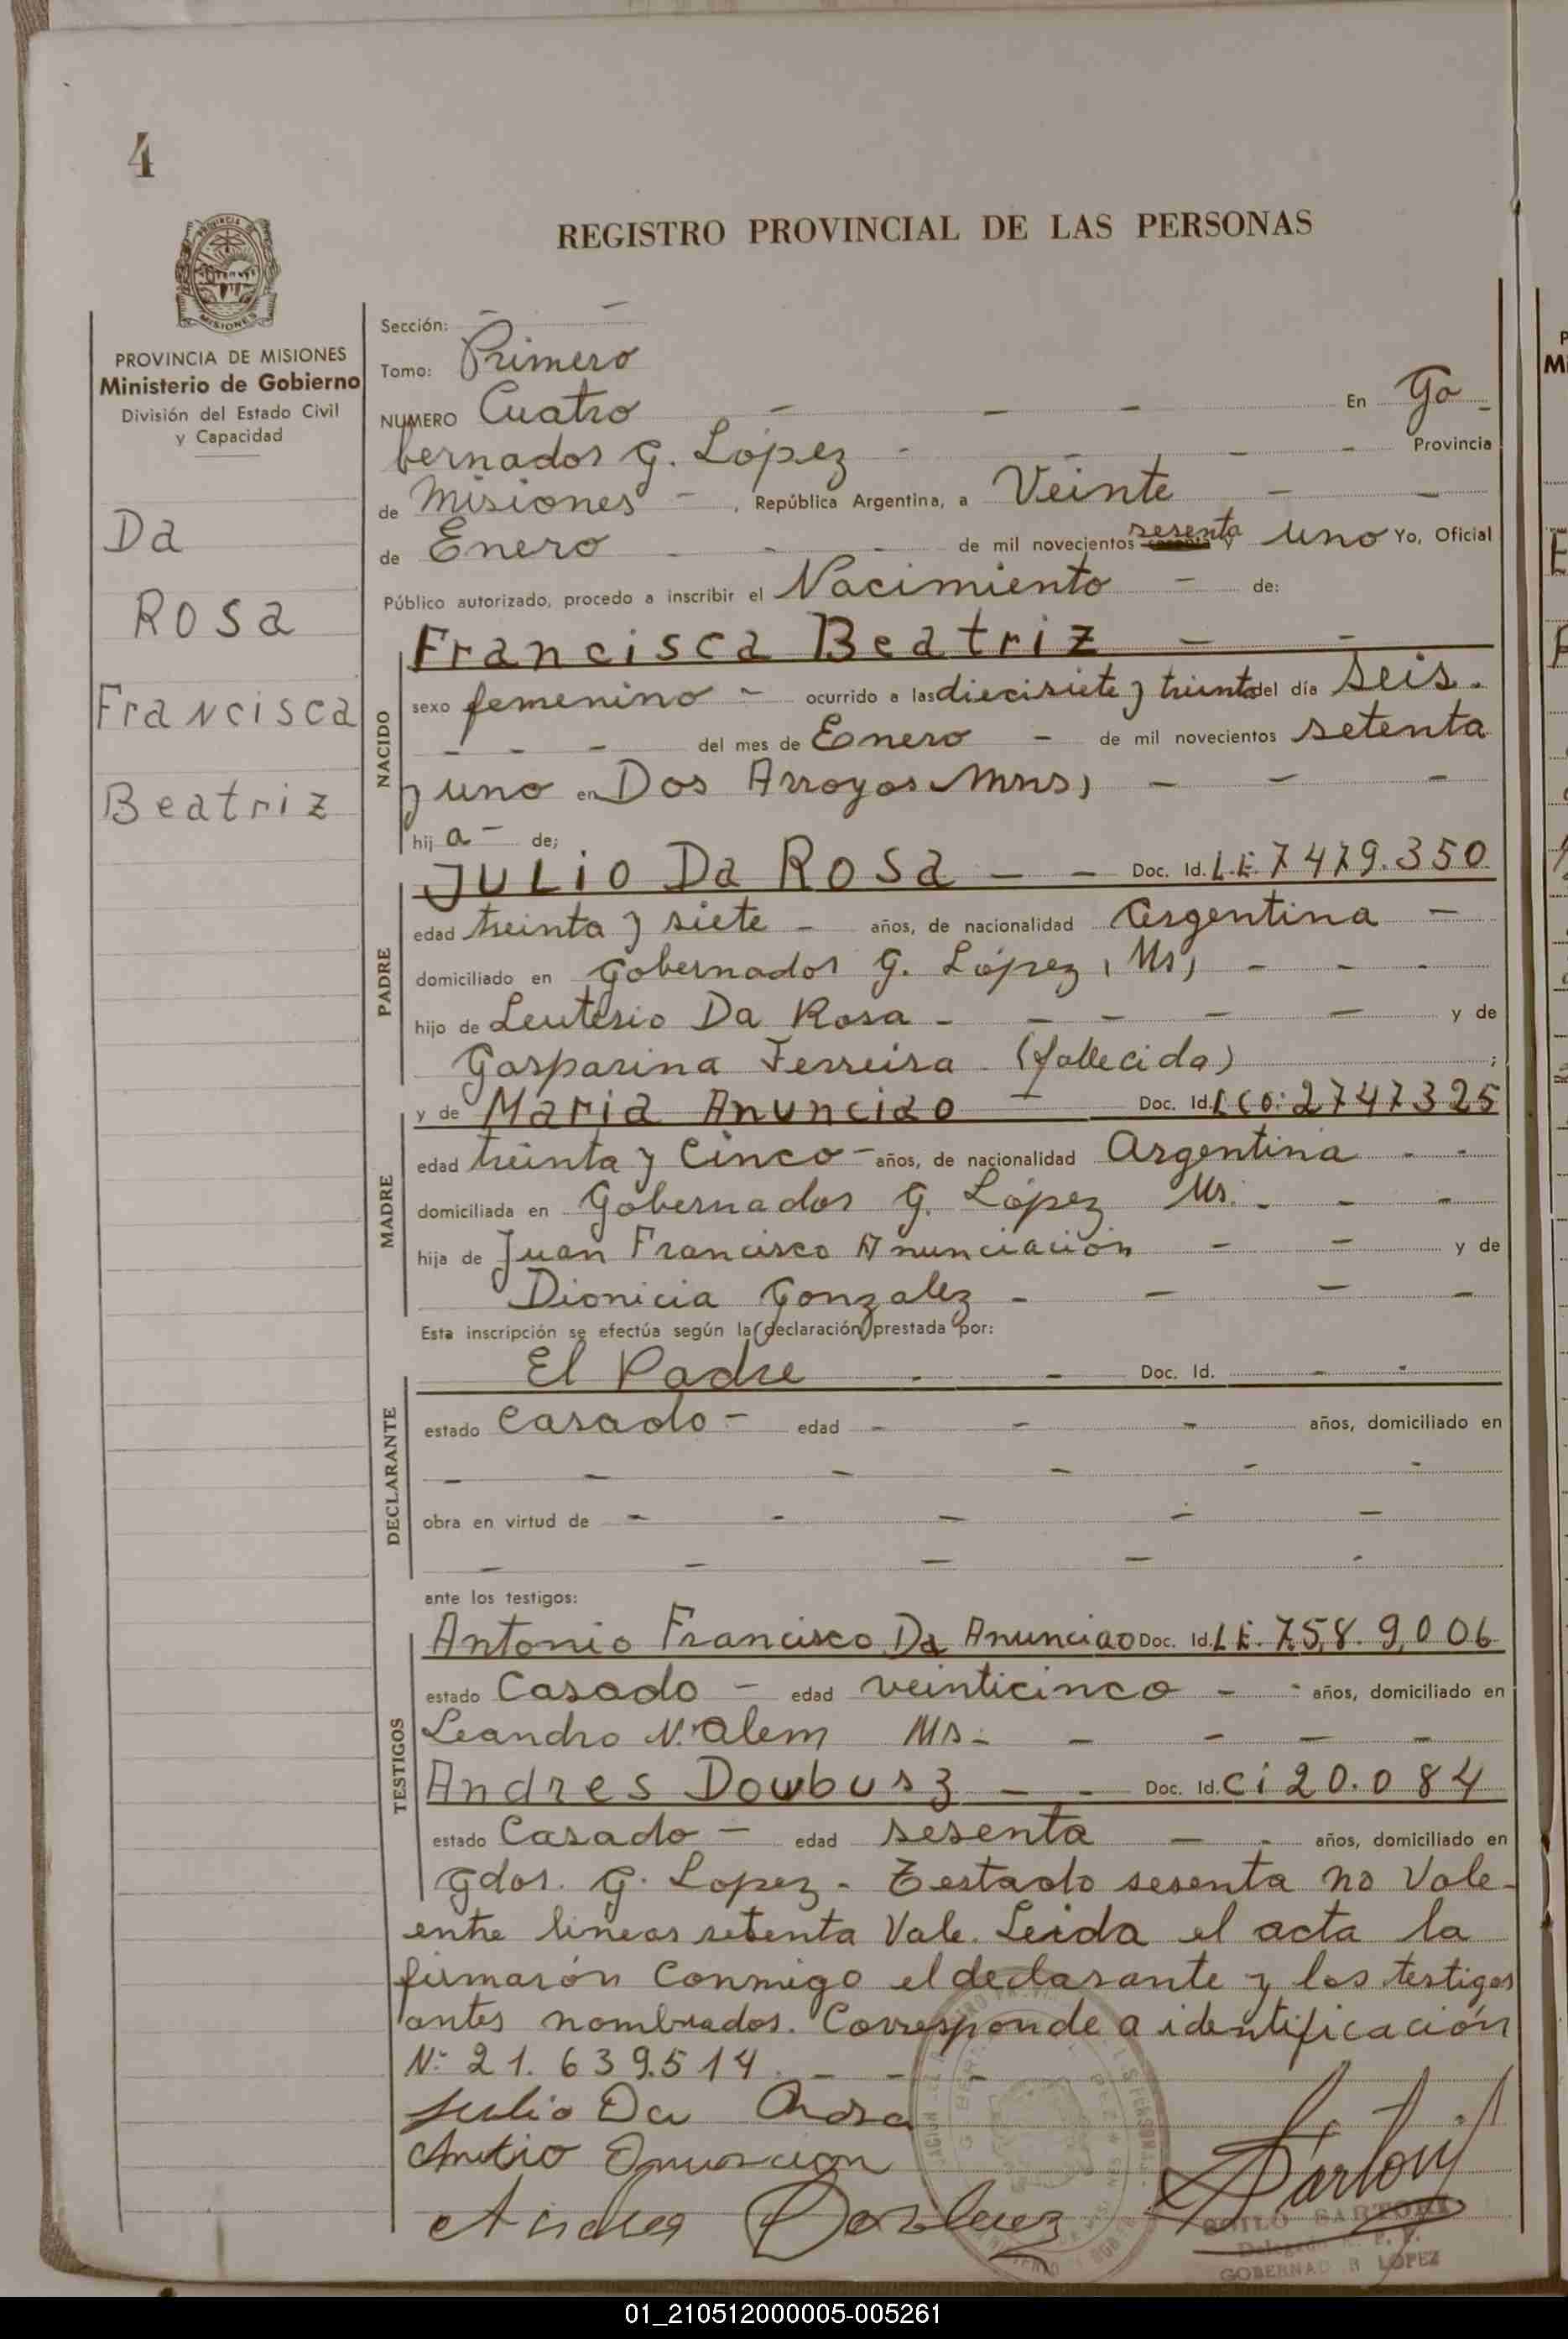 4
PROVINCIA DE MISIONES
Ministerio de Gobierno
División del Estado Civil
y Capacidad
Da
Rosa
Francisca
Beatriz
REGISTRO PROVINCIAL DE LAS PERSONAS
Sección: - -
Tomo: Primero
NUMERO Cuatro - - - En Go-
bernador G. López - - - - Provincia
de Misiones - , República Argentina, a Veinte - -
de Enero - - - de mil novecientos sesenta y uno Yo, Oficial
Público autorizado, procedo a inscribir el Nacimiento - de:
Francisca Beatriz - -
NACIDO
sexo femenino - ocurrido a las diecisiete y treinta del día seis.
- - - del mes de Enero - de mil novecientos setenta
y uno en Dos Arroyos Mns, - - -
hij a - de;
JULIO Da ROSA - - Doc. Id. L.E. 7479.350
PADRE
edad treinta y siete - años, de nacionalidad Argentina -
domiciliado en Gobernador G. López, Ms, - - -
hijo de Leuterio Da Rosa - - - - - y de
Gasparina Ferreira (fallecida) ;
y de Maria Anunciao - Doc. Id. LCo: 2747325
MADRE
edad treinta y cinco - años, de nacionalidad Argentina - -
domiciliada en Gobernador G. López Ms. - - -
hija de Juan Francisco Anunciación - - y de
Dionicia Gonzalez - - - -
Esta inscripción se efectúa según la (declaración) prestada por:
El Padre - - Doc. Id. - -
DECLARANTE
estado Casado - edad - - - años, domiciliado en
- - - - - -
obra en virtud de - - - - -
- - - - -
ante los testigos:
Antonio Francisco Da Anunciao Doc. Id. L.E. 7.58.9.006
TESTIGOS
estado Casado - edad veinticinco - - años, domiciliado en
Leandro N. Alem Ms - - - - -
Andres Dowbusz - - Doc. Id. Ci 20.084
estado Casado - edad sesenta - - años, domiciliado en
Gdor. G. Lopez - Testado sesenta no Vale -
entre lineas setenta Vale. Leida el acta la
firmarón conmigo el declarante y los testigos
antes nombrados. Corresponde a identificación
N° 21.639.514. - - -
Julio Da Rosa
SARTORI
GOBERNAD R LOPEZ
01_210512000005-005261